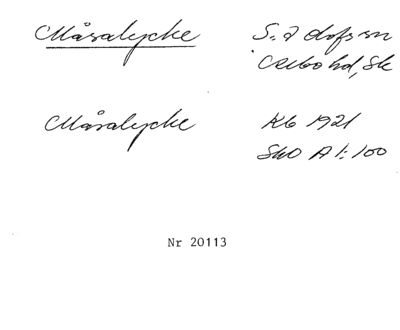 Måsalycke S:t Olofs sn
Albo hd, Sk
Måsalycke Kb 1921
SkO A 1:100
Nr 20113